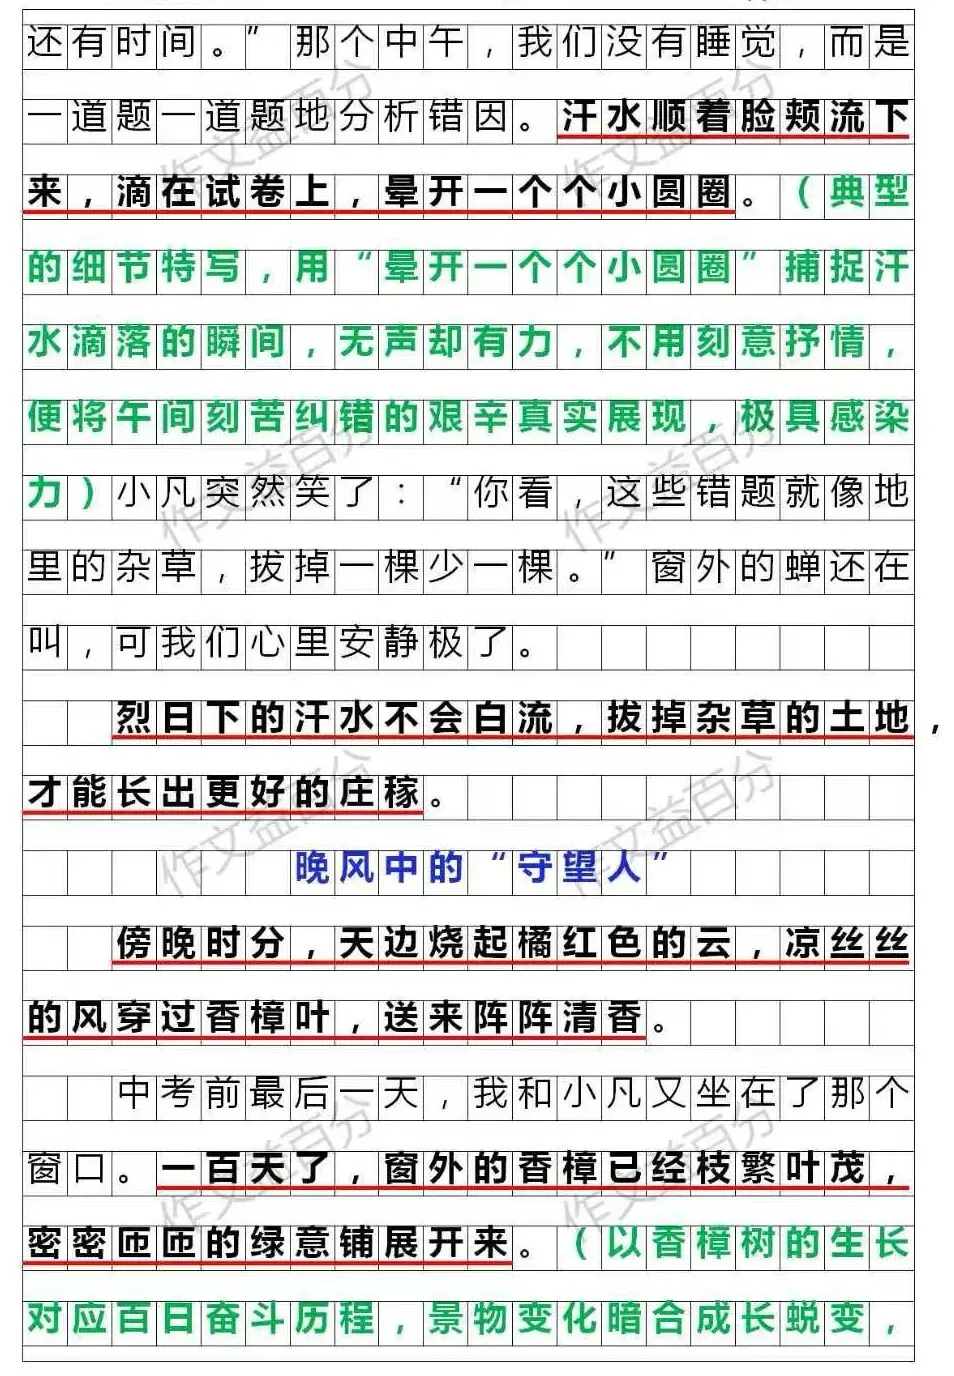 还有时间。”那个中午，我们没有睡觉，而是
一道题一道题地分析错因。汗水顺着脸颊流下
来，滴在试卷上，晕开一个个小圆圈。（典型
的细节特写，用“晕开一个个小圆圈”捕捉汗
水滴落的瞬间，无声却有力，不用刻意抒情，
便将午间刻苦纠错的艰辛真实展现，极具感染
力）小凡突然笑了：“你看，这些错题就像地
里的杂草，拔掉一棵少一棵。”窗外的蝉还在
叫，可我们心里安静极了。
烈日下的汗水不会白流，拔掉杂草的土地，
才能长出更好的庄稼。
晚风中的“守望人”
傍晚时分，天边烧起橘红色的云，凉丝丝
的风穿过香樟叶，送来阵阵清香。
中考前最后一天，我和小凡又坐在了那个
窗口。一百天了，窗外的香樟已经枝繁叶茂，
密密匝匝的绿意铺展开来。（以香樟树的生长
对应百日奋斗历程，景物变化暗合成长蜕变，
作文益百分
作文益百分
作文益百分
作文益百分
作文益百分
作文益百分
作文益百分
作文益百分